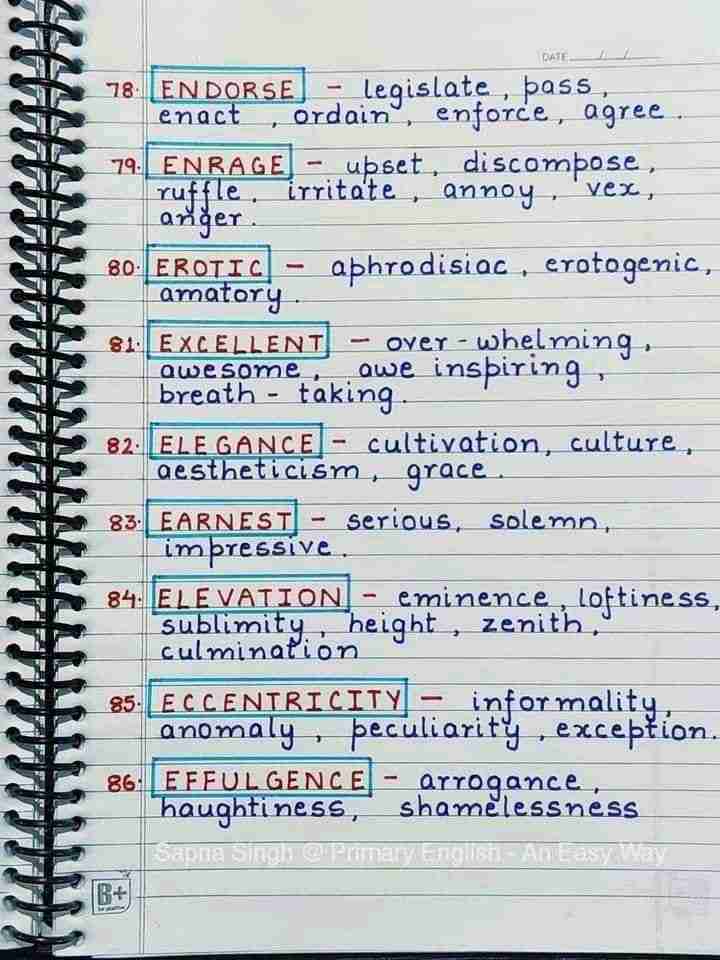 DATE __/__/__
78. ENDORSE - legislate, pass,
enact , ordain, enforce, agree.
79. ENRAGE - upset, discompose,
ruffle, irritate, annoy, vex,
anger.
80. EROTIC - aphrodisiac, erotogenic,
amatory.
81. EXCELLENT - over-whelming,
awesome, awe inspiring,
breath - taking.
82. ELEGANCE - cultivation, culture,
aestheticism, grace.
83. EARNEST - serious, solemn,
impressive.
84. ELEVATION - eminence, loftiness,
sublimity, height, zenith,
culmination
85. ECCENTRICITY - informality,
anomaly, peculiarity, exception.
86. EFFULGENCE - arrogance,
haughtiness, shamelessness
Sapna Singh @ Primary English - An Easy Way
B+